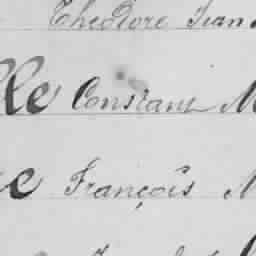 Théodore Jean
lle Constant M
e François M